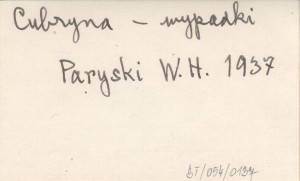 Cubryna – wypadki
Paryski W.H. 1937
BT/054/0137